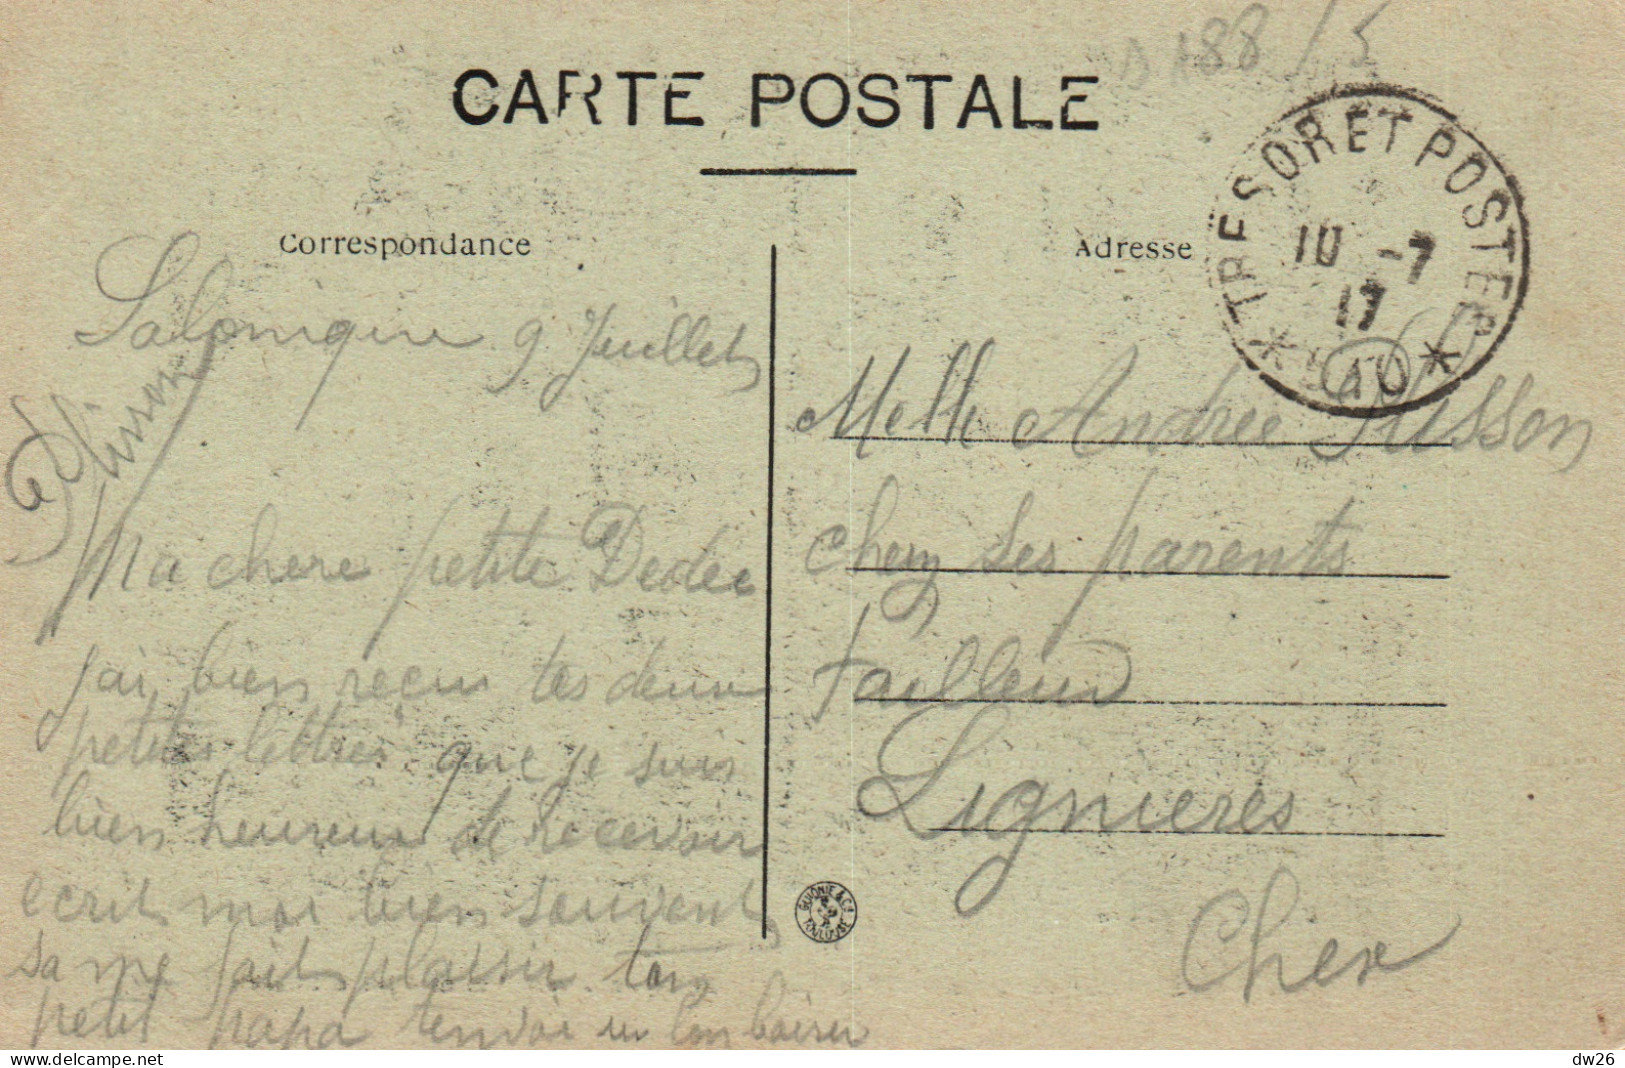 D 188 / 5
CARTE POSTALE
TRESOR ET POSTES
10 -7
17
* 510 *
Correspondance
Adresse
Salonique 9 Juillet
Plisson
Ma chere petite Dedee
j'ai bien reçu tes deux
petites lettres que je suis
bien heureux de recevoir
ecrit moi bien souvent
sa me fait plaisir ton
petit papa t'envoi un bon baiser
Melle Andree Plisson
chez ses parents
tailleur
Lignieres
Cher
GUIONIE & Cie
TOULOUSE
dw26